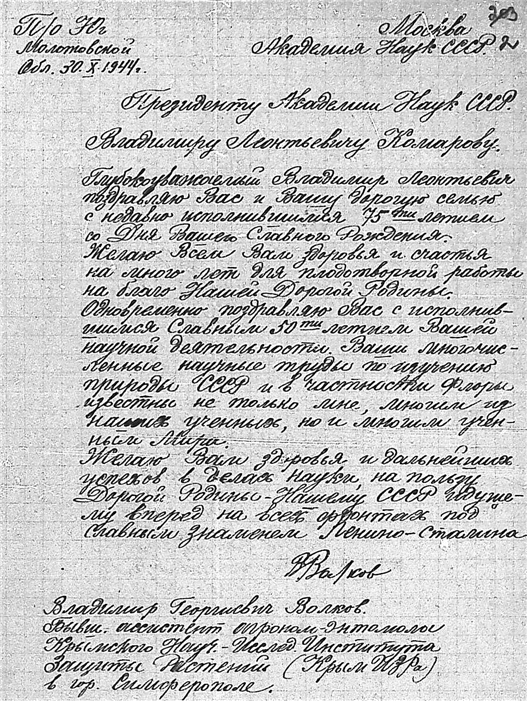 203
П/о Юг
Молотовской
Обл. 30.X.1944г.
Москва
Академия Наук СССР. 2
Президенту Академии Наук СССР.
Владимиру Леонтьевичу Комарову.
Глубокоуважаемый Владимир Леонтьевич
поздравляю Вас и Вашу дорогую семью
с недавно исполнившимся 75тилетием
со Дня Вашего Славного Рождения.
Желаю Всем Вам здоровья и счастья
на много лет для плодотворной работы
на благо Нашей Дорогой Родины.
Одновременно поздравляю Вас с исполнив-
шимся Славным 50тилетием Вашей
научной деятельности. Ваши многочис-
ленные научные труды по изучению
природы СССР и в частности Флоры
известны не только мне, многим из
наших ученых, но и многим учен-
ным Мира.
Желаю Вам здоровья и дальнейших
успехов в делах Науки, на пользу
Дорогой Родины - Нашему СССР идуще-
му вперед на всех фронтах под
Славным знаменем Ленино-Сталина
ВВолков
Владимир Георгиевич Волков.
Бывш. ассистент агроном-энтомолог
Крымского Науч.-Исслед. Института
Защиты Растений (
в гор. Симферополе.